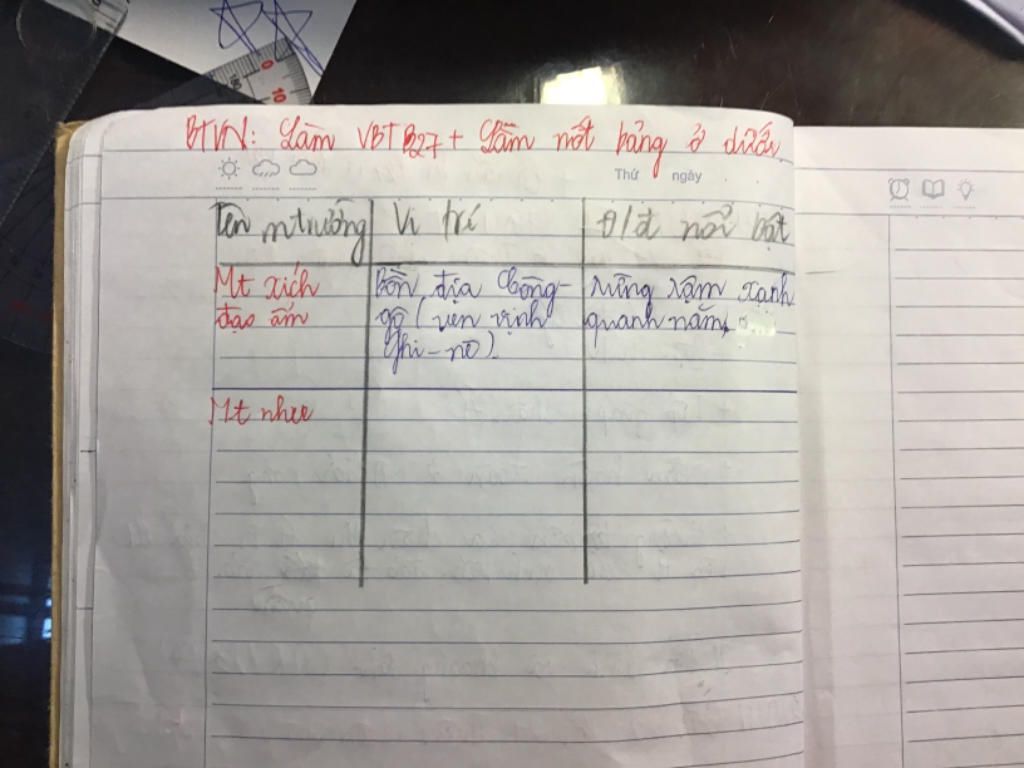 BTVN: Làm VBT B27 + Làm nốt bảng ở dưới
Thứ ngày
Tên mtrường Vị trí Đ/đ nổi bật
Mt xích Bồn địa Công- rừng rậm xanh
đạo ẩm gô (ven vịnh quanh năm,
Ghi-nê).
Mt nhiệ
0
10